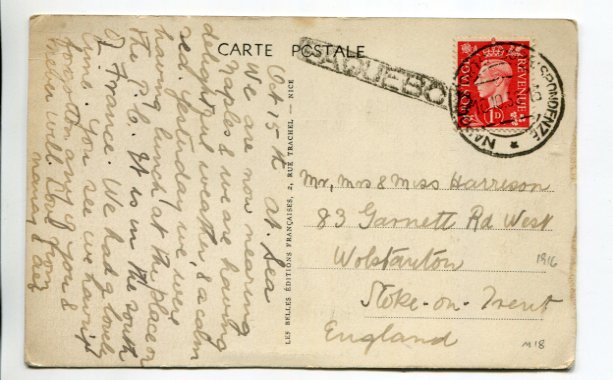 CARTE POSTALE
PAQUEBO
POSTAGE REVENUE
1D
NA
CORRISPONDENZE
Oct 15th at Sea
We are now nearing
Naples & we are having
delightful weather & a calm
sea. Yesterday we were
having lunch at the place on
the P.C. It is in the South
of France. We had a lovely
time. You see we haven't
forgotten any of you &
never will. Love from
LES BELLES ÉDITIONS FRANÇAISES, 2, RUE TRACHEL — NICE
Mr, Mrs & Miss Harrison
83 Garnett Rd West
Wolstanton
Stoke-on-Trent
England
1916
M18